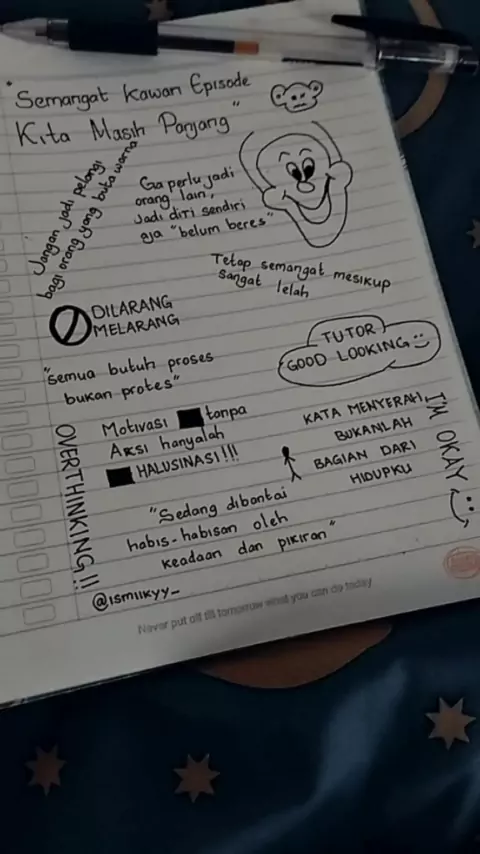 "Semangat Kawan Episode
Kita Masih Panjang"
Jangan jadi pelangi
bagi orang yang buta warna
Ga perlu jadi
orang lain,
Jadi diri sendiri
aja "belum beres"
Tetap semangat meskiup
sangat lelah
DILARANG
MELARANG
TUTOR
GOOD LOOKING
"semua butuh proses
bukan protes"
Motivasi tanpa
Aksi hanyalah
HALUSINASI!!!
OVERTHINKING!!
KATA MENYERAH,
BUKANLAH
BAGIAN DARI
HIDUPKU
I'M OKAY
"Sedang dibantai
habis-habisan oleh
keadaan dan pikiran"
@ismiikyy_
Never put off till tomorrow what you can do today